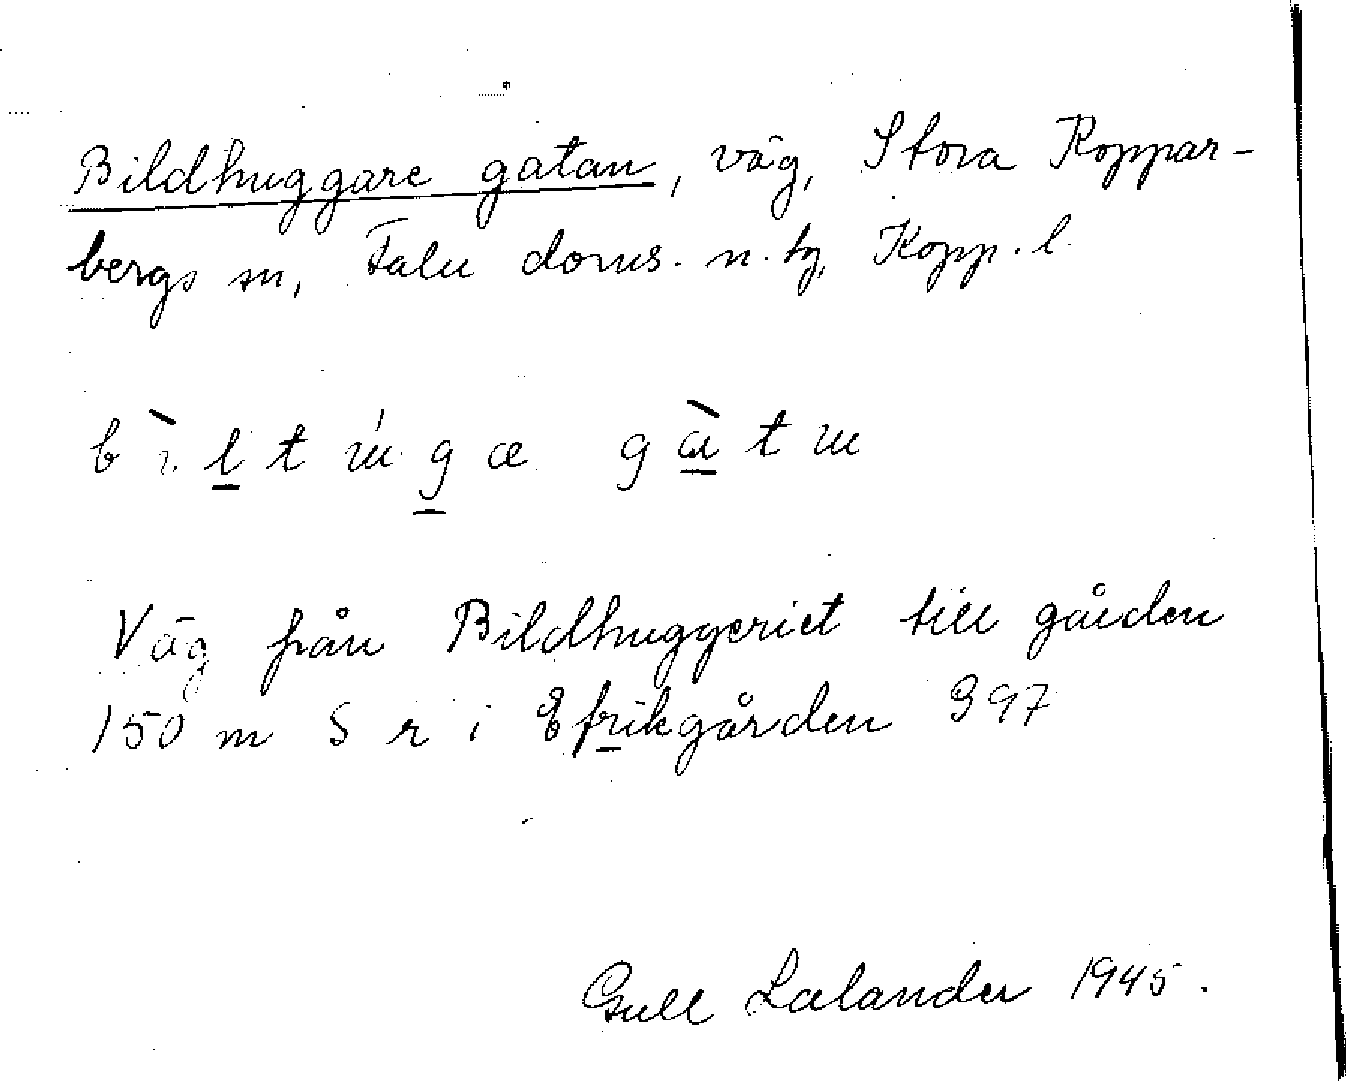 Bildhuggare gatan, väg, Stora Koppar-
bergs sn, Falu doms. n. tg, Kopp. l.
Väg från Bildhuggeriet till gården
150 m S r i Efrikgården 397
Gull Lalander 1945.